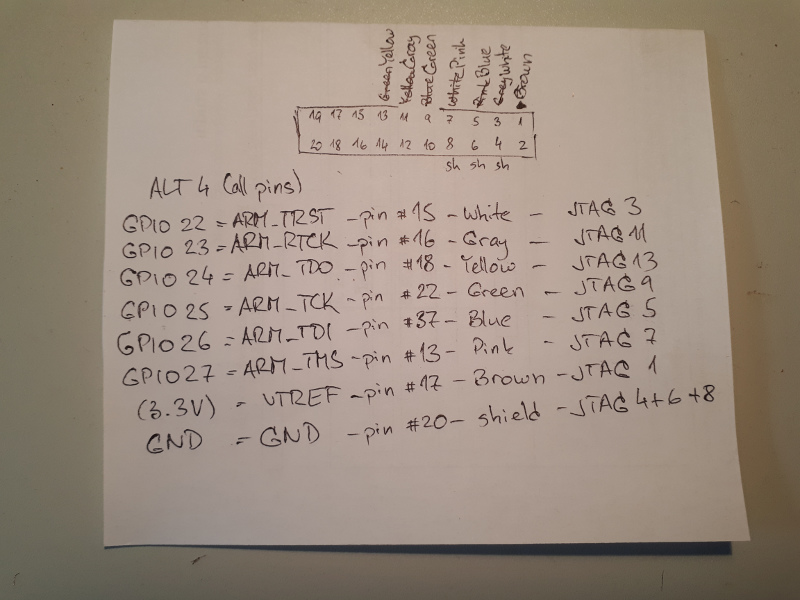 Green Yellow
Yellow Gray
Blue Green
White Pink
Pink Blue
Gray White
Brown
19 17 15 13 11 9 7 5 3 1
20 18 16 14 12 10 8 6 4 2
sh sh sh
ALT 4 (all pins)
GPIO 22 = ARM_TRST - pin #15 - White - JTAG 3
GPIO 23 = ARM_RTCK - pin #16 - Gray - JTAG 11
GPIO 24 = ARM_TDO - pin #18 - Yellow - JTAG 13
GPIO 25 = ARM_TCK - pin #22 - Green - JTAG 9
GPIO 26 = ARM_TDI - pin #37 - Blue - JTAG 5
GPIO 27 = ARM_TMS - pin #13 - Pink - JTAG 7
(3.3V) = VTREF - pin #17 - Brown - JTAG 1
GND = GND - pin #20 - shield - JTAG 4+6+8